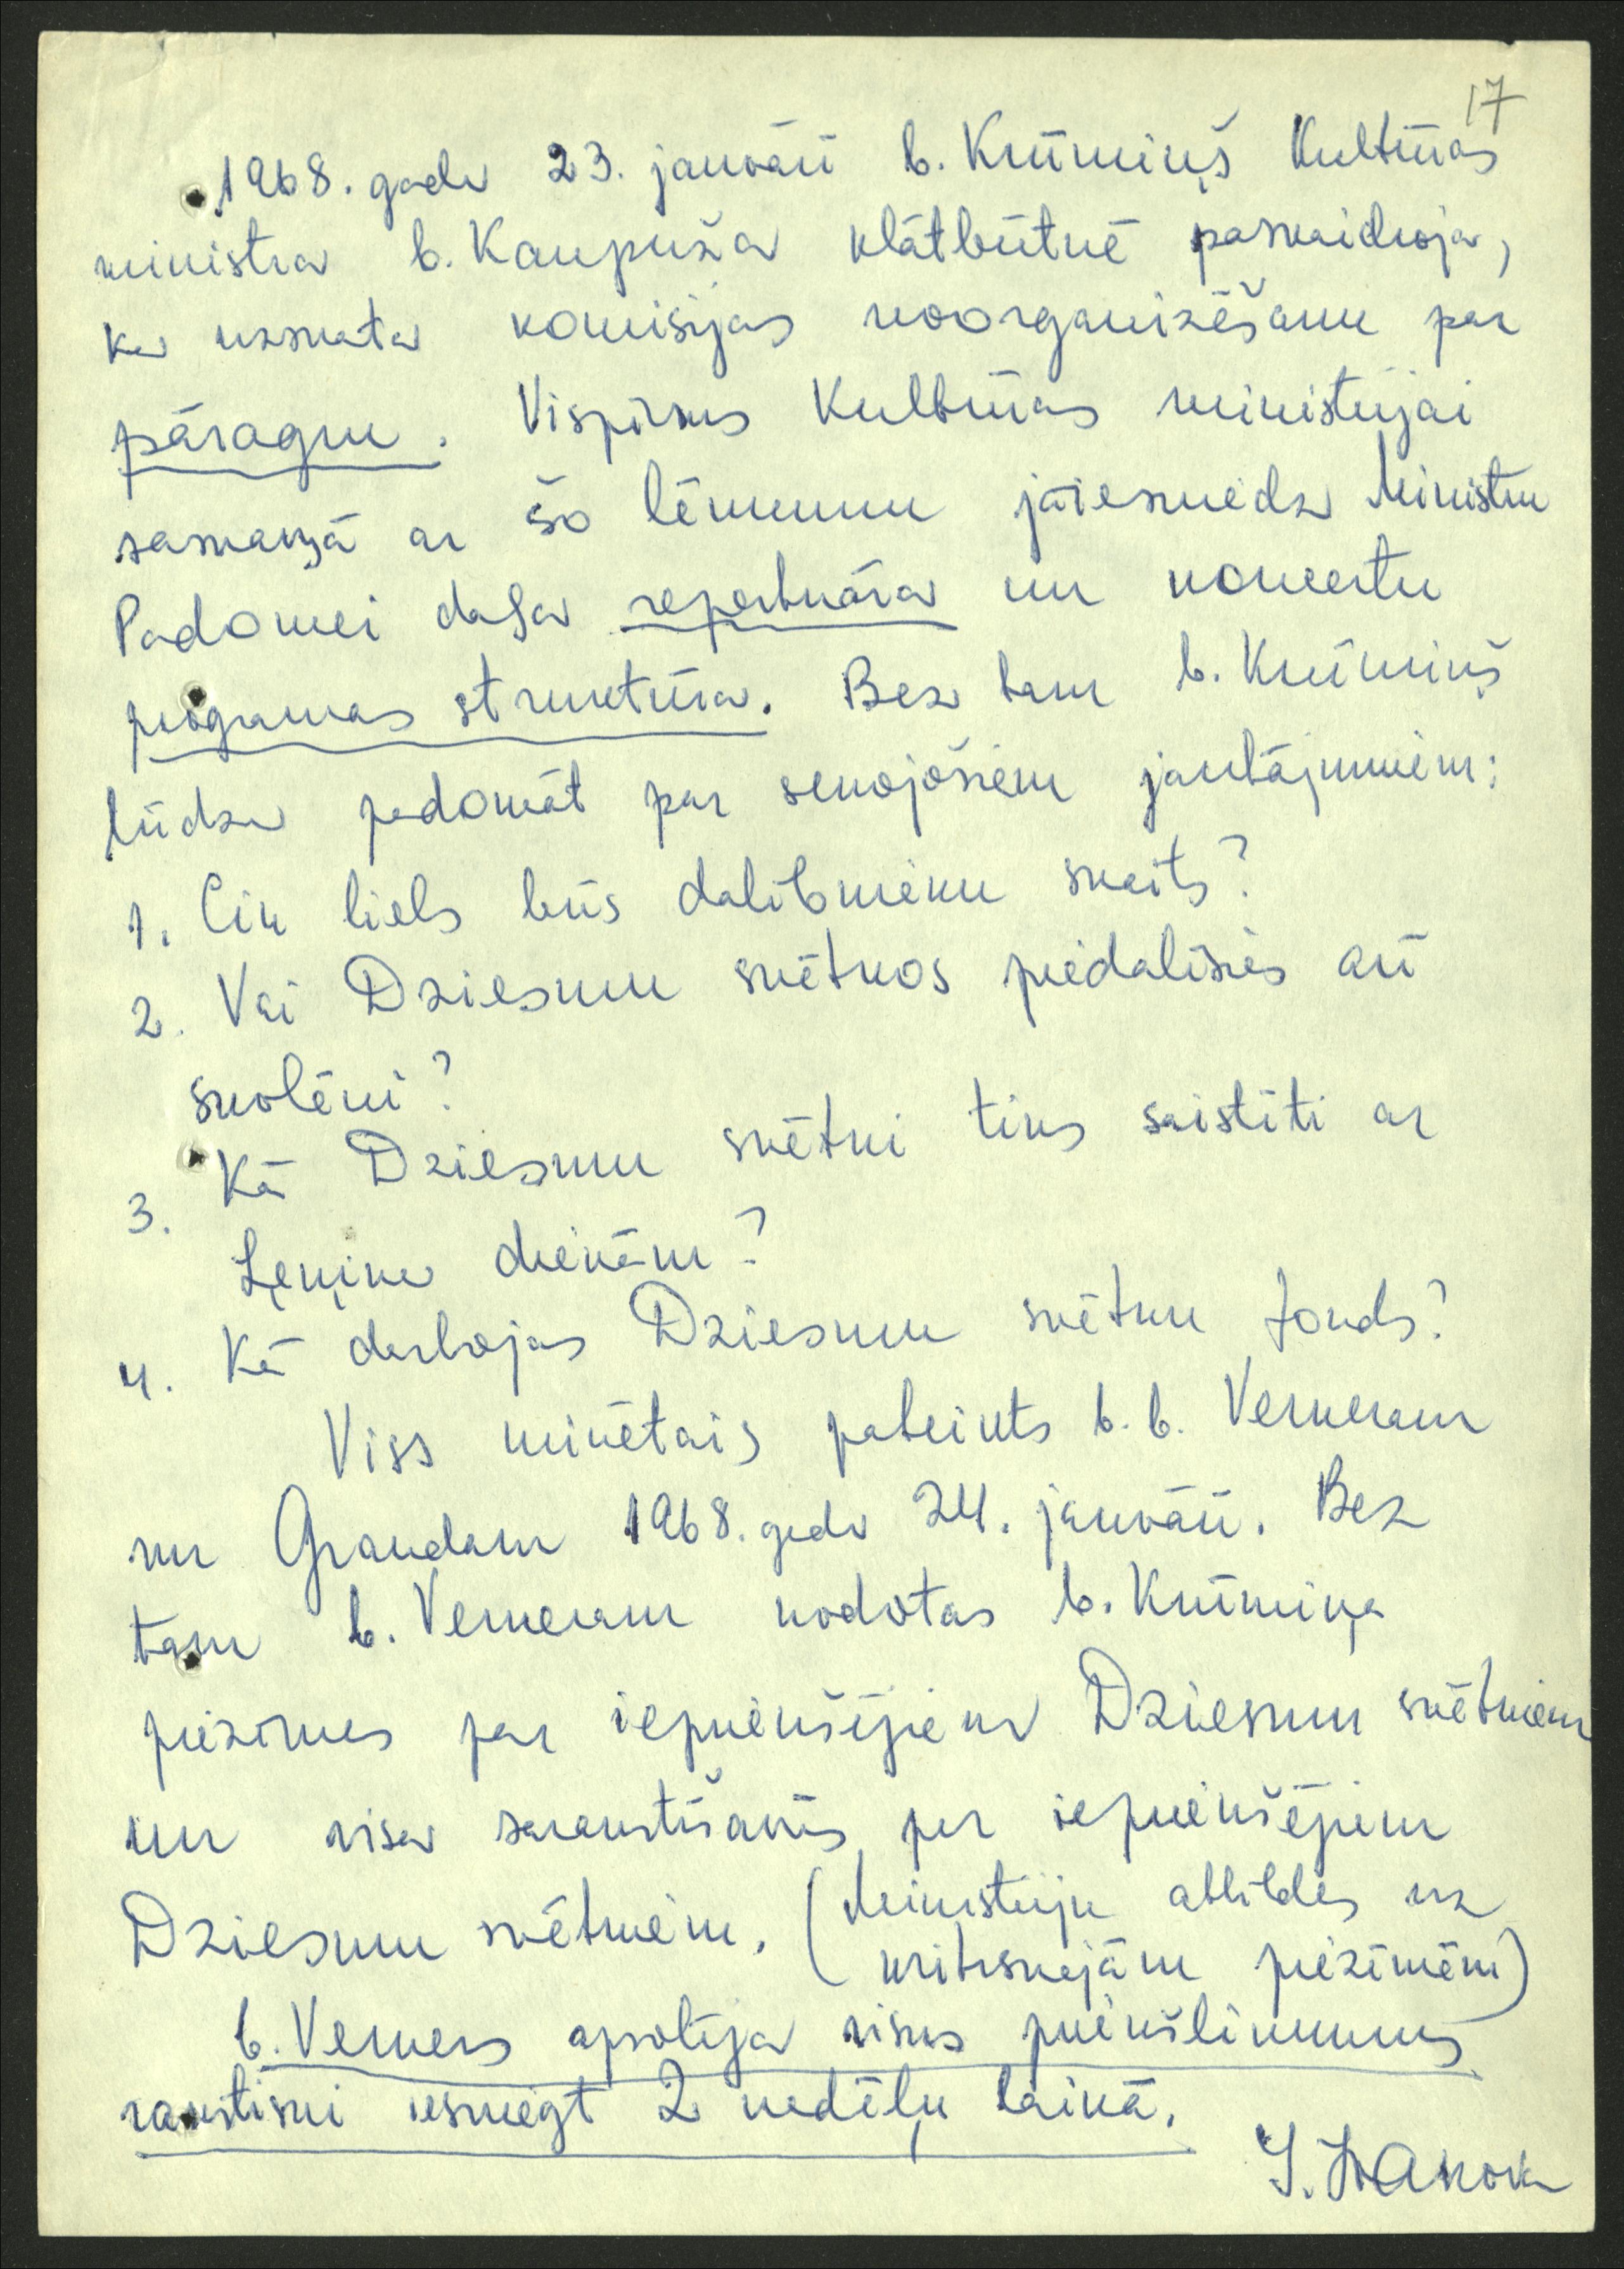 17
1968. gada 23. janvārī b. Krūmiņš Kultūras
ministra b. Kaupuža klātbūtnē paskaidroja,
ka uzskata komisijas noorganizēšanu par
pāragru. Vispirms Kultūras ministrijai
saskaņā ar šo lēmumu jāiesniedz Ministru
Padomei daļa repertuāra un koncertu
programas struktūra. Bez tam b. Krūmiņš
lūdza padomāt par sekojošiem jautājumiem:
1. Cik liels būs dalībnieku skaits?
2. Vai Dziesmu svētkos piedalīsies arī
skolēni?
3. Kā Dziesmu svētki tiks saistīti ar
Ļeņina dienām?
4. Kā darbojas Dziesmu svētku fonds?
Viss minētais pateikts b.b. Verneram
un Graudam 1968. gada 24. janvārī. Bez
tam b. Verneram nodotas b. Krūmiņa
piezīmes par iepriekšējiem Dziesmu svētkiem
un visa sarakstīšanās par iepriekšējiem
Dziesmu svētkiem. (Ministriju atbildes uz
kritiskajām piezīmēm)
b. Verners apsolīja visus priekšlikumus
rakstiski iesniegt 2 nedēļu laikā.